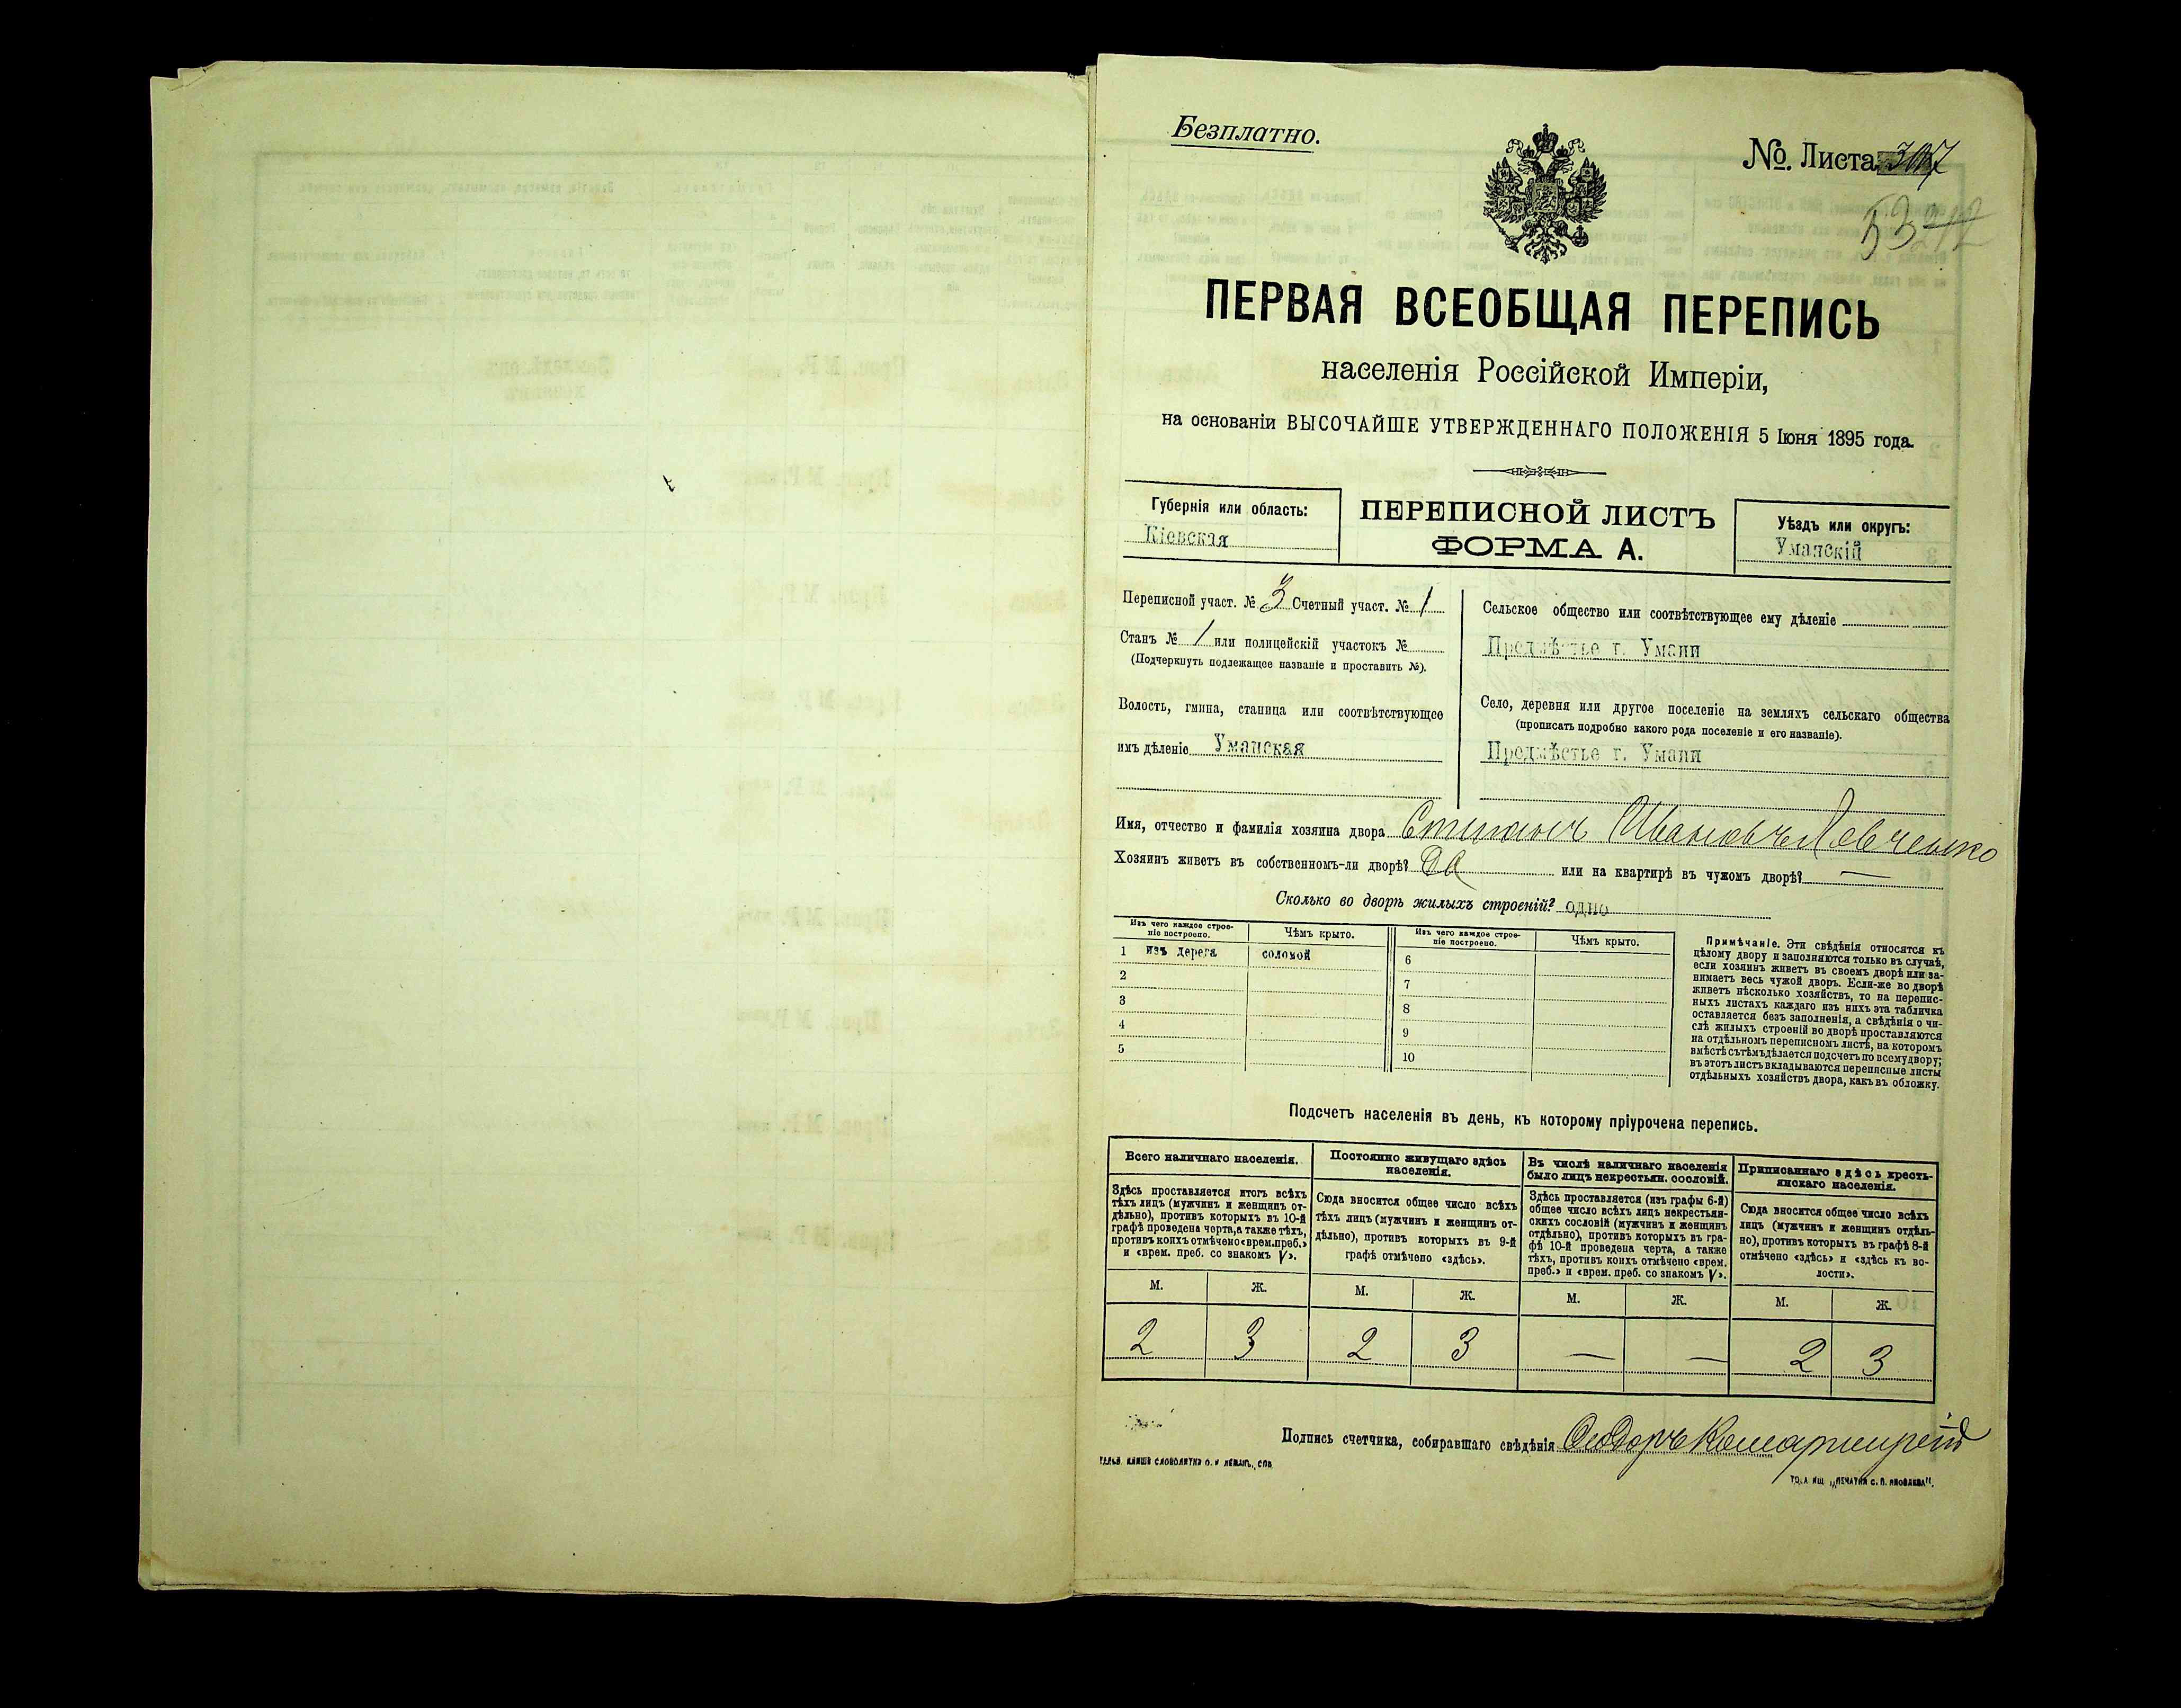 Безплатно.
№. Листа 307
53
ПЕРВАЯ ВСЕОБЩАЯ ПЕРЕПИСЬ
населенія Россійской Имперіи,
на основаніи ВЫСОЧАЙШЕ УТВЕРЖДЕННАГО ПОЛОЖЕНІЯ 5 Іюня 1895 года.
Губернія или область:
Кіевская
ПЕРЕПИСНОЙ ЛИСТЪ
ФОРМА А.
Уѣздъ или округъ:
Уманскій
Переписной участ. № 3 Счетный участ. № 1
Станъ № 1 или полицейскій участокъ №
(Подчеркнуть подлежащее названіе и проставить №).
Волость, гмина, станица или соотвѣтствующее
имъ дѣленіе Уманская
Сельское общество или соотвѣтствующее ему дѣленіе
Предмѣстье г. Умани
Село, деревня или другое поселеніе на земляхъ сельскаго общества
(прописать подробно какого рода поселеніе и его названіе).
Предмѣстье г. Умани
Имя, отчество и фамилія хозяина двора Степанъ Ивановъ Левченко
Хозяинъ живетъ въ собственномъ-ли дворѣ? Да или на квартирѣ въ чужомъ дворѣ? —
Сколько во дворѣ жилыхъ строеній? одно
Изъ чего каждое строе-
ніе построено.
Чѣмъ крыто.
Изъ чего каждое строе-
ніе построено.
Чѣмъ крыто.
1 изъ дерева соломой
2
3
4
5
6
7
8
9
10
Примѣчаніе. Эти свѣдѣнія относятся къ
цѣлому двору и заполняются только въ случаѣ,
если хозяинъ живетъ въ своемъ дворѣ или за-
нимаетъ весь чужой дворъ. Если-же во дворѣ
живетъ нѣсколько хозяйствъ, то на перепис-
ныхъ листахъ каждаго изъ нихъ эта табличка
оставляется безъ заполненія, а свѣдѣнія о чи-
слѣ жилыхъ строеній во дворѣ проставляются
на отдѣльномъ переписномъ листѣ, на которомъ
вмѣстѣ съ тѣмъ дѣлается подсчетъ по всему двору;
въ этотъ листъ вкладываются переписные листы
отдѣльныхъ хозяйствъ двора, какъ въ обложку.
Подсчетъ населенія въ день, къ которому пріурочена перепись.
Всего наличнаго населенія.
Здѣсь проставляется итогъ всѣхъ
тѣхъ лицъ (мужчинъ и женщинъ от-
дѣльно), противъ которыхъ въ 10-й
графѣ проведена черта, а также тѣхъ,
противъ коихъ отмѣчено «врем. преб.»
и «врем. преб. со знакомъ V».
Постоянно живущаго здѣсь
населенія.
Сюда вносится общее число всѣхъ
тѣхъ лицъ (мужчинъ и женщинъ от-
дѣльно), противъ которыхъ въ 9-й
графѣ отмѣчено «здѣсь».
Въ числѣ наличнаго населенія
было лицъ некрестьян. сословій.
Здѣсь проставляется (изъ графы 6-й)
общее число всѣхъ лицъ некрестьян-
скихъ сословій (мужчинъ и женщинъ
отдѣльно), противъ которыхъ въ гра-
фѣ 10-й проведена черта, а также
тѣхъ, противъ коихъ отмѣчено «врем.
преб.» и «врем. преб. со знакомъ V».
Приписаннаго здѣсь кресть-
янскаго населенія.
Сюда вносится общее число всѣхъ
лицъ (мужчинъ и женщинъ отдѣль-
но), противъ которыхъ въ графѣ 8-й
отмѣчено «здѣсь» и «здѣсь къ во-
лости».
М. Ж. М. Ж. М. Ж. М. Ж.
2 3 2 3 — — 2 3
Подпись счетчика, собиравшаго свѣдѣнія Ѳеодоръ